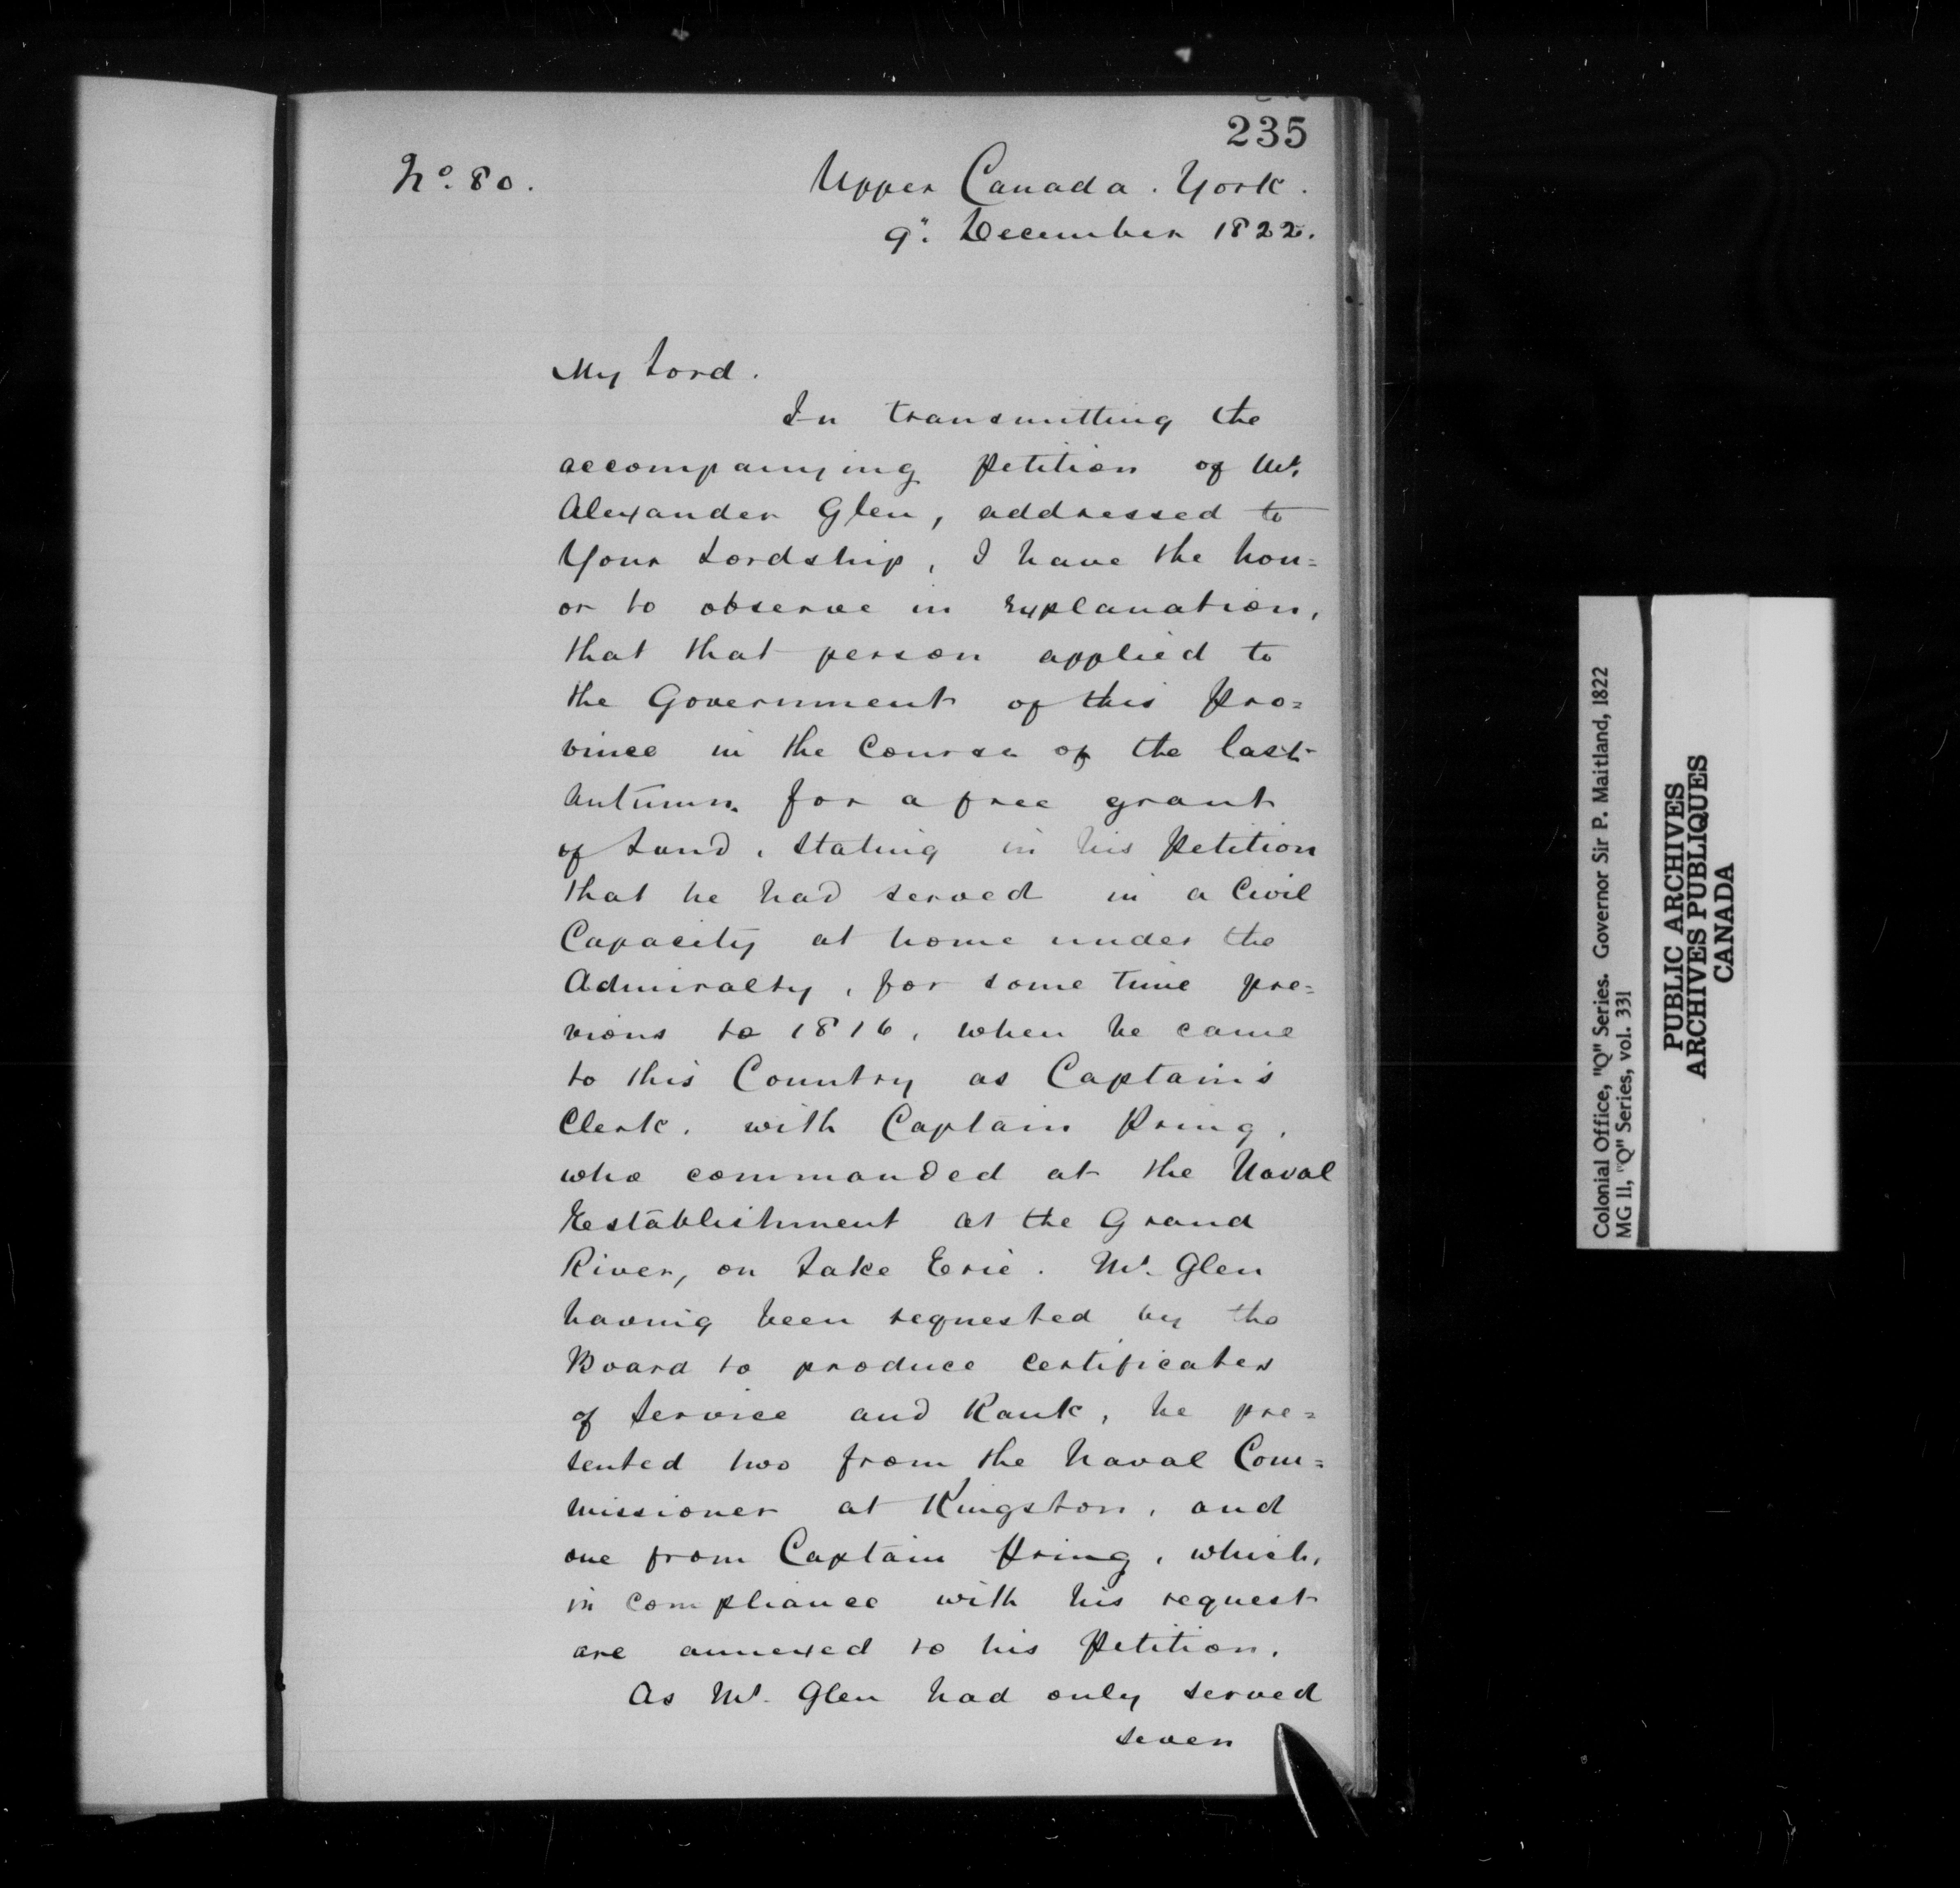 235
No. 80.
Upper Canada. York.
9". December 1822.
My Lord.
In transmitting the
accompanying Petition of Mr.
Alexander Glen, addressed to
Your Lordship, I have the hon=
or to observe in Explanation,
that that person applied to
the Government of this Pro=
vince in the Course of the last
Autumn for a free grant
of Land, Stating in his Petition
that he had served in a Civil
Capacity at home under the
Admiralty, for some time pre=
vious to 1816, when he came
to this Country as Captain's
Clerk, with Captain Pring,
who commanded at the Naval
Establishment at the Grand
River, on Lake Erie. Mr. Glen
having been requested by the
Board to produce certificates
of Service and Rank, he pre=
sented two from the Naval Com=
missioner at Kingston, and
one from Captain Pring, which,
in compliance with his request
are annexed to his Petition.
As Mr. Glen had only served
seven
Colonial Office, "Q" Series. Governor Sir P. Maitland, 1822
MG 11, "Q" Series, vol. 331
PUBLIC ARCHIVES
ARCHIVES PUBLIQUES
CANADA